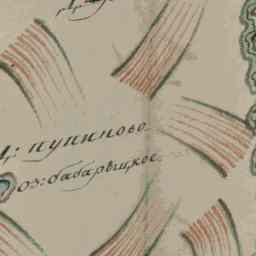 ц: пупиново
оз: бабарыцкое